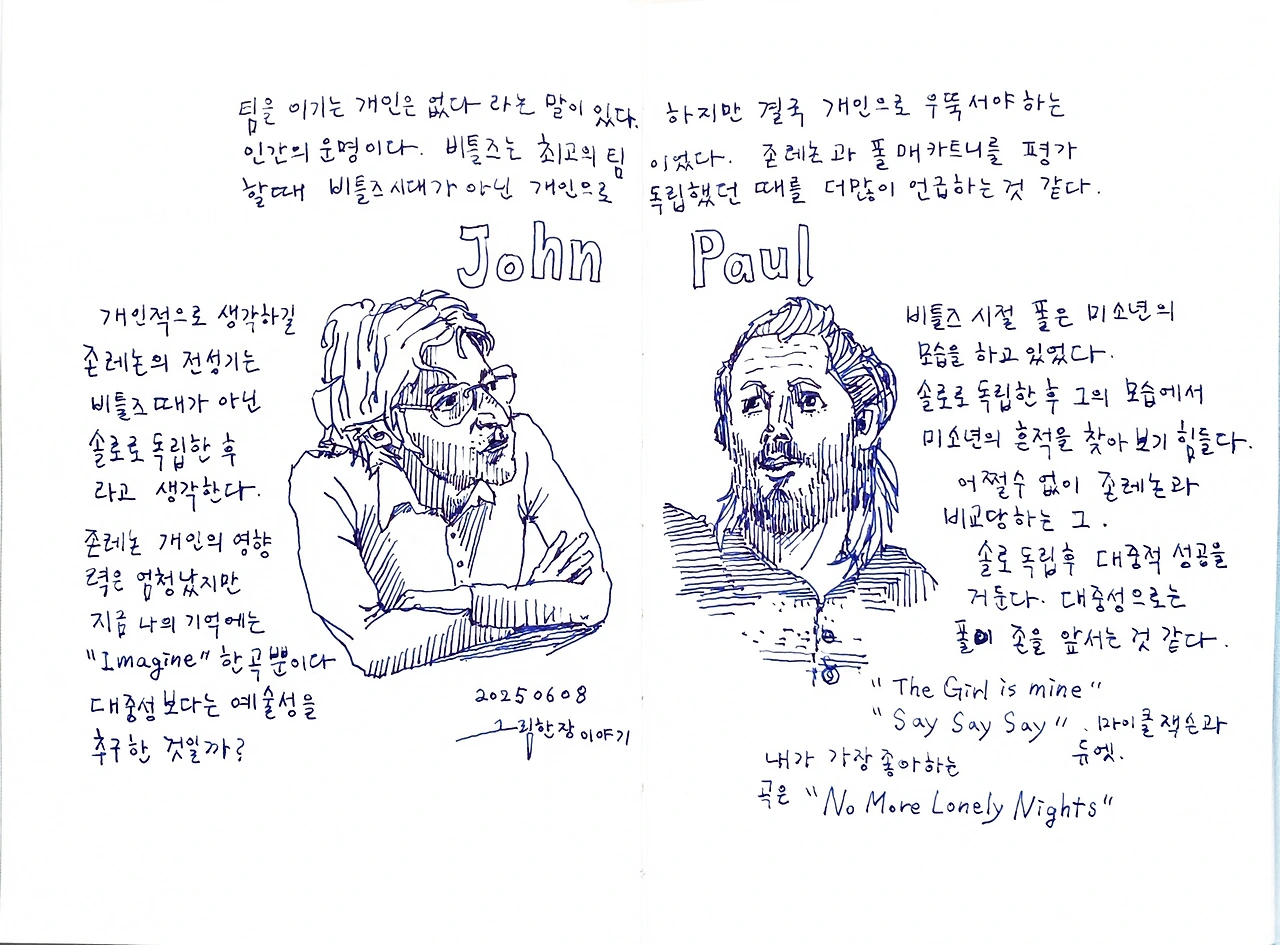 팀을 이기는 개인은 없다 라는 말이 있다. 하지만 결국 개인으로 우뚝서야 하는
인간의 운명이다. 비틀즈는 최고의 팀 이었다. 존레논과 폴매카트니를 평가
할때 비틀즈시대가 아닌 개인으로 독립했던 때를 더많이 언급하는것 같다.
John
개인적으로 생각하길
존레논의 전성기는
비틀즈때가 아닌
솔로로 독립한 후
라고 생각한다.
존레논 개인의 영향
력은 엄청났지만
지금 나의 기억에는
"Imagine" 한곡뿐이다
대중성보다는 예술성을
추구한 것일까?
20250608
그림한장이야기
Paul
비틀즈 시절 폴은 미소년의
모습을 하고 있었다.
솔로로 독립한 후 그의 모습에서
미소년의 흔적을 찾아 보기 힘들다.
어쩔수 없이 존레논과
비교당하는 그.
솔로 독립후 대중적 성공을
거둔다. 대중성으로는
폴이 존을 앞서는 것 같다.
"The Girl is mine"
"Say Say Say" . 마이클 잭슨과
듀엣.
내가 가장 좋아하는
곡은 "No More Lonely Nights"